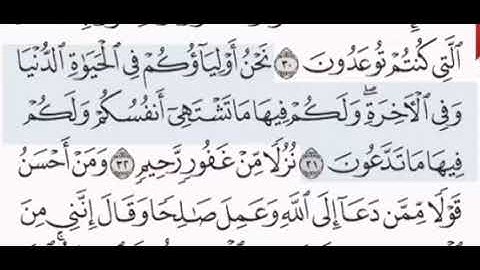 ٱلَّتِي كُنتُمْ تُوعَدُونَ ٣٠ نَحْنُ أَوْلِيَآؤُكُمْ فِي ٱلْحَيَوٰةِ ٱلدُّنْيَا
وَفِي ٱلْأَخِرَةِ ۖ وَلَكُمْ فِيهَا مَا تَشْتَهِىٓ أَنفُسُكُمْ وَلَكُمْ
فِيهَا مَا تَدَّعُونَ ٣١ نُزُلًا مِّنْ غَفُورٍ رَّحِيمٍ ٣٢ وَمَنْ أَحْسَنُ
قَوْلًا مِّمَّن دَعَآ إِلَى ٱللَّهِ وَعَمِلَ صَٰلِحًا وَقَالَ إِنَّنِي مِنَ